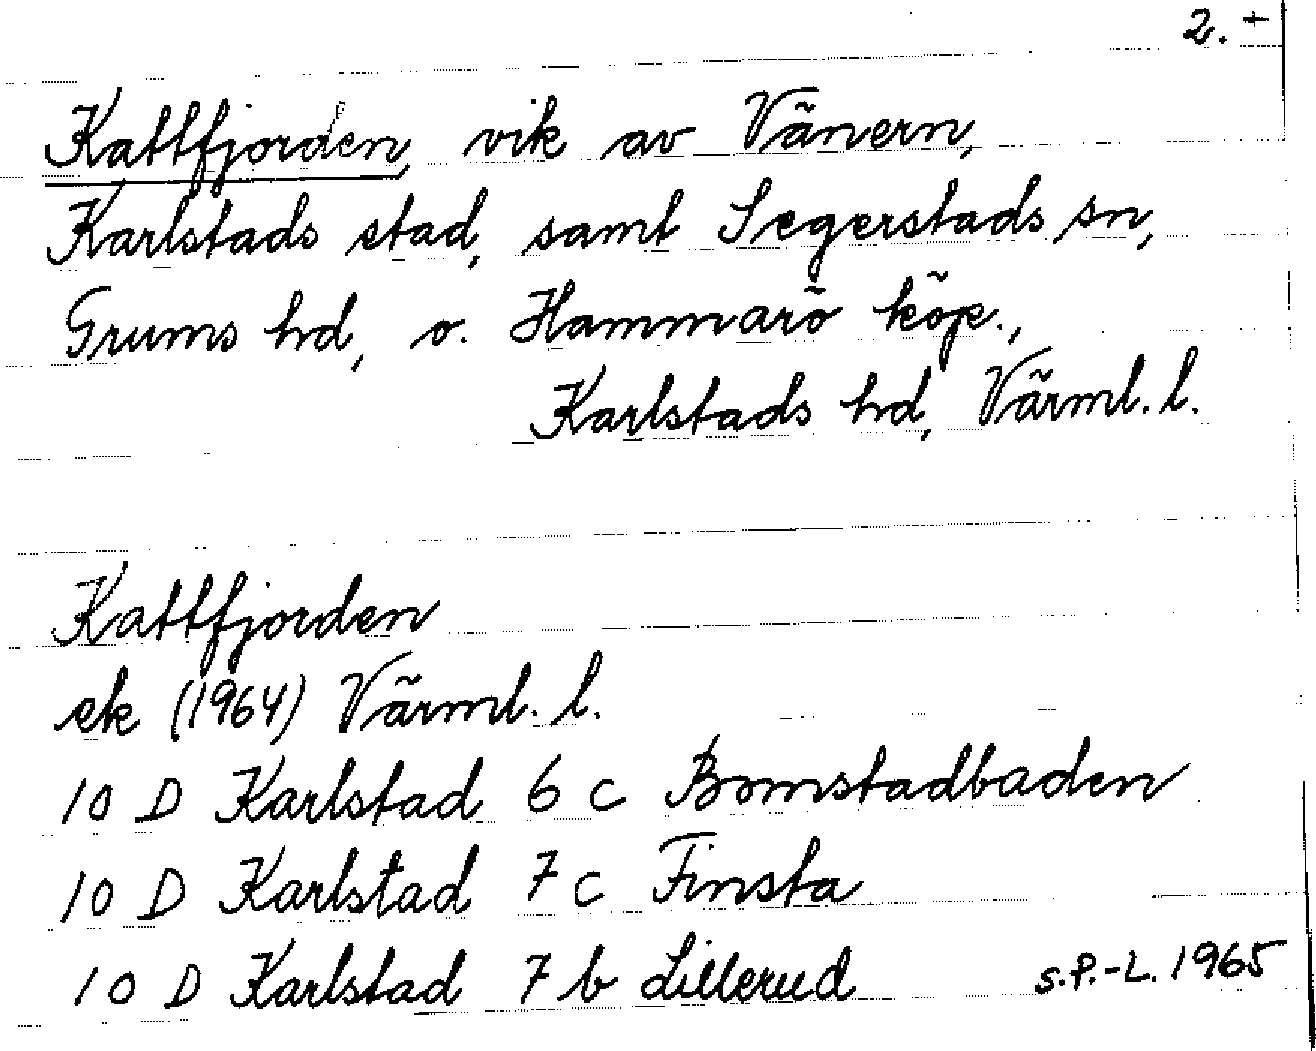 2. +
Kattfjorden, vik av Vänern,
Karlstads stad, samt Segerstads sn,
Grums hd, o. Hammarö köp.,
Karlstads hd, Värml. l.
Kattfjorden
ek (1964) Värml. l.
10 D Karlstad 6 c Bomstadbaden
10 D Karlstad 7 c Finsta
10 D Karlstad 7 b Lillerud
s.P.-L. 1965